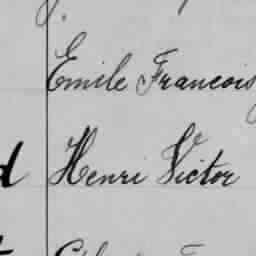 Emile Francois
d Henri Victor